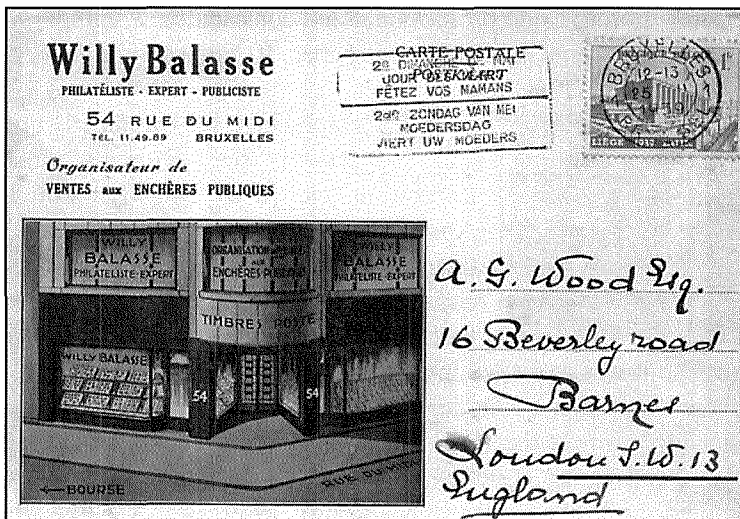 Willy Balasse
PHILATÉLISTE - EXPERT - PUBLICISTE
54 RUE DU MIDI
TÉL. 11.49.89 BRUXELLES
Organisateur de
VENTES aux ENCHÈRES PUBLIQUES
CARTE POSTALE
POSTKAART
2e DIMANCHE DE MAI
JOUR DES MERES
FÊTEZ VOS MAMANS
2de ZONDAG VAN MEI
MOEDERSDAG
VIERT UW MOEDERS
BRUXELLES
12-13
25
1F
WILLY
BALASSE
PHILATÉLISTE-EXPERT
ORGANISATION
AUX
ENCHÈRES
WILLY
BALASSE
PHILATÉLISTE-EXPERT
TIMBRES POSTE
WILLY BALASSE
54
54
← BOURSE
RUE DU MIDI
A. G. Wood Esq.
16 Beverley road
Barnes
London S.W.13
England